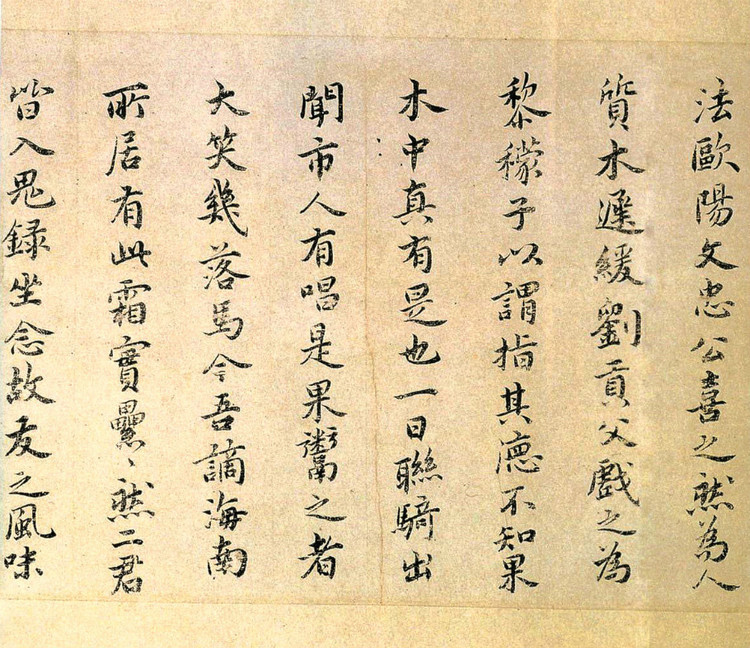 法歐陽文忠公喜之然為人
質木遲緩劉貢父戲之為
黎檬子以謂指其德不知果
木中真有是也一日聯騎出
聞市人有唱是果鬻之者
大笑幾落馬今吾謫海南
所居有此霜實纍〻然二君
皆入鬼錄坐念故友之風味